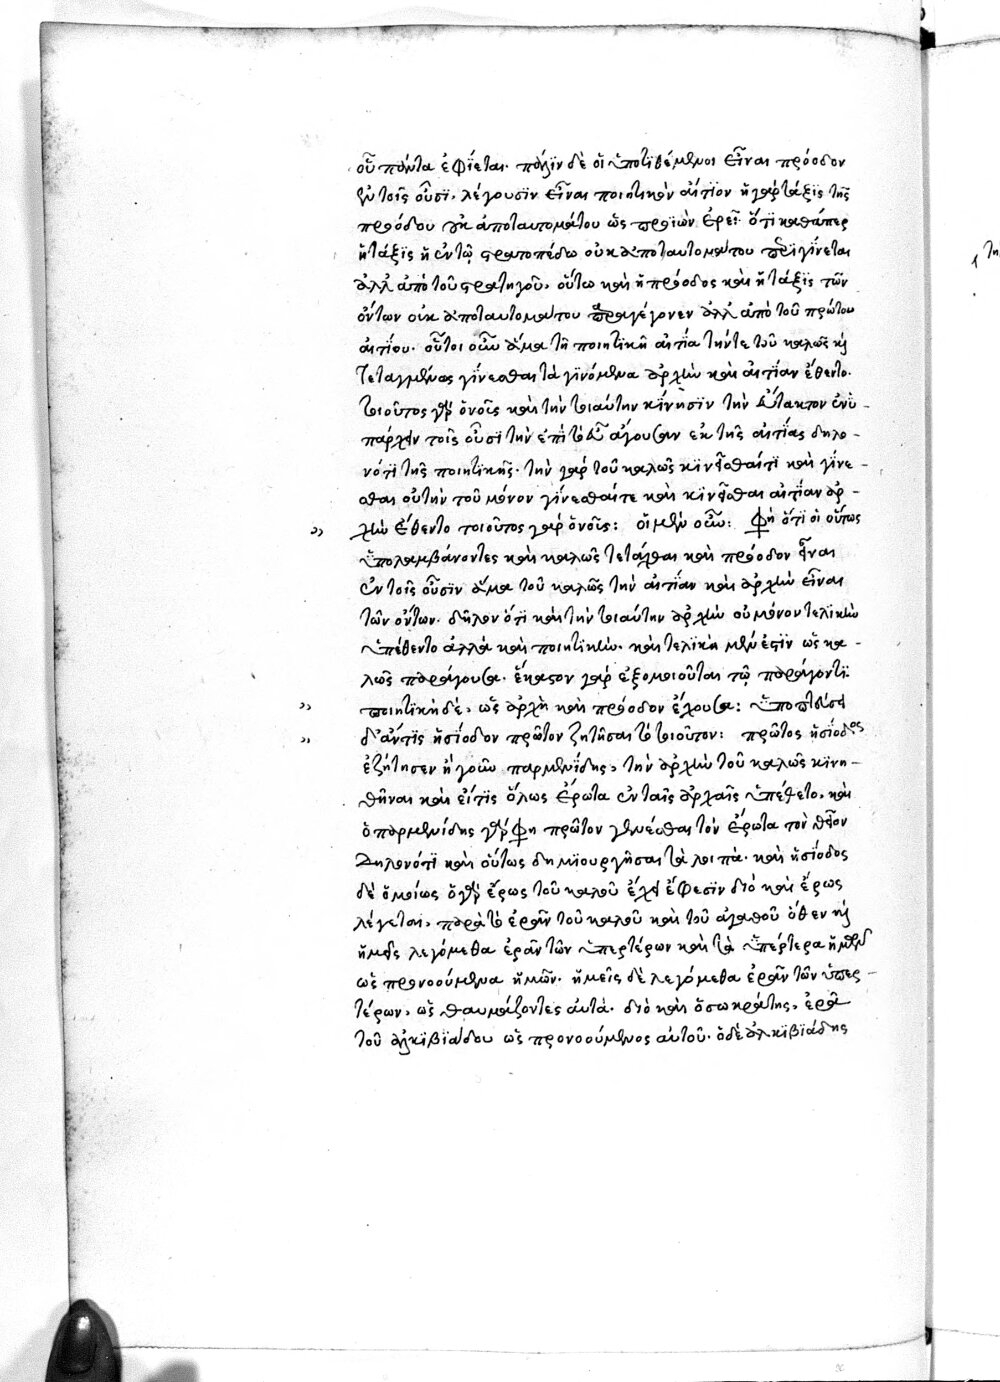 οὗ πάντα ἐφίεται. πάλιν δὲ οἱ ὑποτιθέμενοι εἶναι πρόοδον
ἐν τοῖς οὖσι, λέγουσιν εἶναι ποιητικὸν αἴτιον ἡ γὰρ τάξις τῆς
προόδου οὐκ ἀποταυτομάτου ὡς προϊὼν ἐρεῖ. ὅτι καθάπερ
ἡ τάξις ἡ ἐν τῷ στρατοπέδω οὐκ ἀποταυτομάτου γίνεται
ἀλλ' ἀπὸ τοῦ στρατηγοῦ, οὕτω καὶ ἡ πρόοδος καὶ ἡ τάξις τῶν
ὄντων οὐκ ἀποταυτομάτου παραγέγονεν ἀλλ' ἀπὸ τοῦ πρώτου
αἰτίου. οὗτοι οὖν ἅμα τῇ ποιητικῇ αἰτία τήν τε τοῦ καλῶς καὶ
τεταγμένως γίνεσθαι τὰ γινόμενα ἀρχὴν καὶ αἰτίαν ἔθεντο.
τοιοῦτος γὰρ ὁ νοῦς καὶ τὴν τοιαύτην κίνησιν τὴν εὔτακτον ἐνϋ-
πάρχειν τοῖς οὖσι τὴν ἐπὶ τὸ εὖ ἄγουσαν ἐκ τῆς αἰτίας δηλο-
νότι τῆς ποιητικῆς. τὴν γὰρ τοῦ καλῶς κινεῖσθαί τι καὶ γίνε-
σθαι οὐ τὴν τοῦ μόνον γίνεσθαί τε καὶ κινεῖσθαι αἰτίαν ἀρ-
χὴν ἔθεντο τοιοῦτος γὰρ ὁ νοῦς: οἱ μὲν οὖν: φη ὅτι οἱ οὕτως
ὑπολαμβάνοντες καὶ καλῶς τετάχθαι καὶ πρόοδον εἶναι
ἐν τοῖς οὖσιν ἅμα τοῦ καλῶς τὴν αἰτίαν καὶ ἀρχὴν εἶναι
τῶν ὄντων. δῆλον ὅτι καὶ τὴν τοιαύτην ἀρχὴν οὐ μόνον τελικὴν
ὑπέθεντο ἀλλὰ καὶ ποιητικήν. καὶ τελικὴ μέν ἐστιν ὡς κα-
λῶς παράγουσα. ἕκαστον γὰρ ἐξομοιοῦται τῷ παράγοντι.
ποιητικὴ δὲ, ὡς ἀρχὴ καὶ πρόοδον ἔχουσα: ὑποπτεύσειε
δ' ἄν τις ἡσίοδον πρῶτον ζητῆσαι τὸ τοιοῦτον: πρῶτος ἡσίοδος
ἐζήτησεν ἢ γοῦν παρμενίδης, τὴν ἀρχὴν τοῦ καλῶς κινη-
θῆναι καὶ εἴ τις ὅλως ἔρωτα ἐν ταῖς ἀρχαῖς ὑπέθετο. καὶ
ὁ παρμενίδης γάρ φη πρῶτον γενέσθαι τὸν ἔρωτα τὸν θεῖον
δηλονότι καὶ οὕτως δημιουργῆσαι τὰ λοιπά. καὶ ἡσίοδος
δὲ ὁμοίως ὁ γὰρ ἔρως τοῦ καλοῦ ἔχει ἔφεσιν διὸ καὶ ἔρως
λέγεται, παρὰ τὸ ἐρᾶν τοῦ καλοῦ καὶ τοῦ ἀγαθοῦ ὅθεν καὶ
ἡμεῖς λεγόμεθα ἐρᾶν τῶν ὑπερτέρων καὶ τὰ ὑπέρτερα ἡμῶν
ὡς προνοούμενα ἡμῶν. ἡμεῖς δὲ λεγόμεθα ἐρᾶν τῶν ὑπερ-
τέρων, ὡς θαυμάζοντες αὐτά. διὸ καὶ ὁ σωκράτης, ἐρᾶ
τοῦ ἀλκιβιάδου ὡς προνοούμενος αὐτοῦ. ὁ δὲ ἀλκιβιάδης